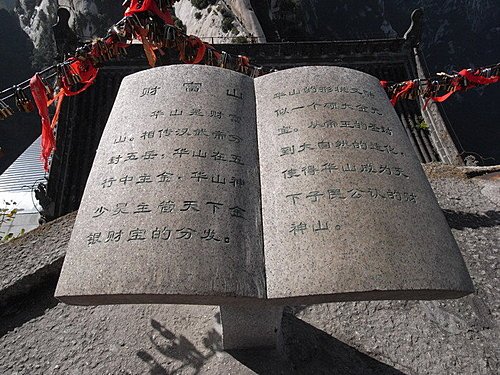 财富山
华山是财富
山。相传汉武帝分
封五岳，华山在五
行中主金，华山神
少昊主管天下金
银财宝的分发。
华山的形状又酷
似一个硕大金元
宝。从帝王的至封
到大自然的造化，
使得华山成为天
下子民公认的财
神山。